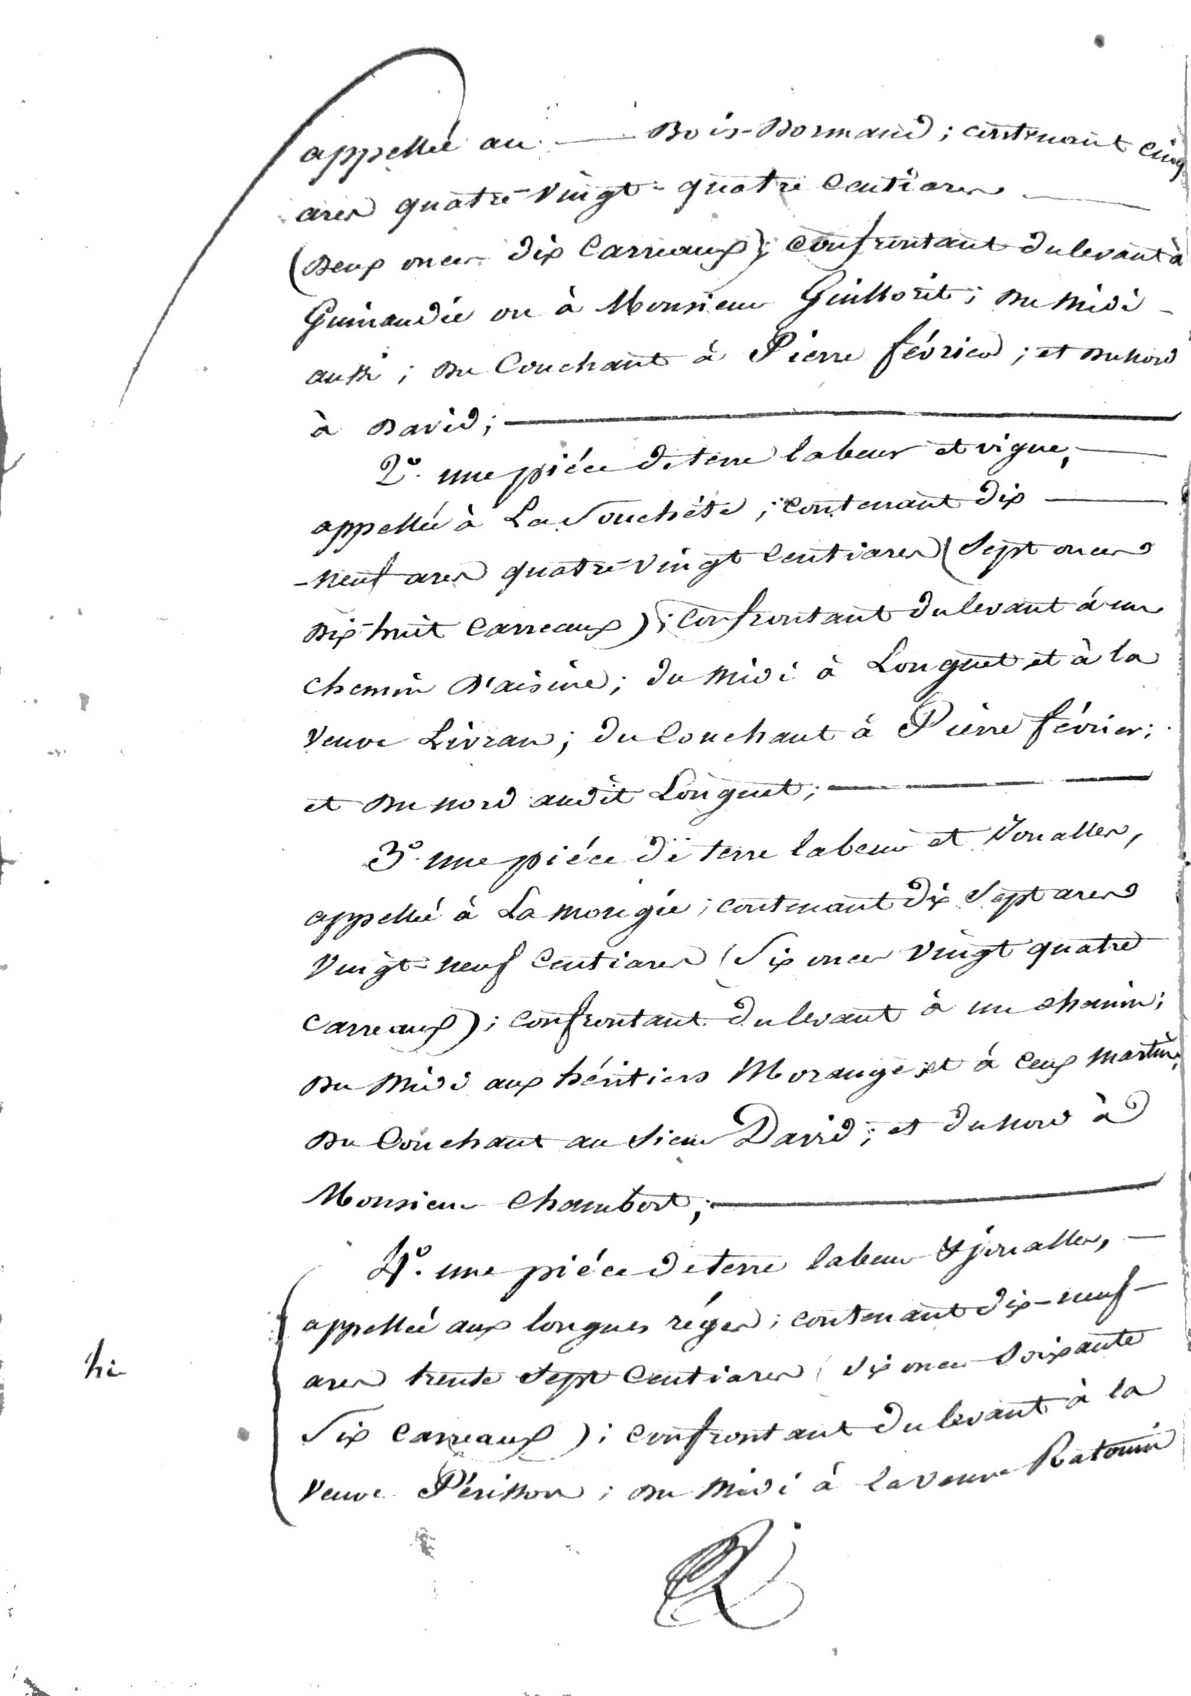 appellée au — Bois-Dormand ; contenant cinq
ares quatre-vingt-quatre centiares —
(deux onces dix carreaux) ; confrontant du levant à
Guiraudie ou à Monsieur Guillorit ; du midi -
aussi ; du couchant à Pierre février ; et du nord
à David ; —
2.° une piéce de terre labeur et vigne, —
appellée à La Souchéte ; contenant dix —
-neuf ares quatre-vingt centiares (sept onces
dix-huit carreaux) ; confrontant du levant à un
chemin d'aisine ; du midi à Longuet et à la
veuve Livran ; du couchant à Pierre février ;
et du nord audit Longuet ; —
3.° une piéce de terre labeur et Joualles,
appellé à La mongie ; contenant dix sept ares
vingt-neuf centiares (six onces vingt quatre
carreaux) ; confrontant du levant à un chemin ;
du midi aux héritiers Morange et à ceux martin,
du couchant au sieur David ; et du nord à
Monsieur Chambort ; —
4.° une piéce de terre labeur & joualles, —
appellée aux longues réges ; contenant dix-neuf-
ares trente sept centiares (six onces soixante
six carreaux) ; confrontant du levant à la
veuve Périsson ; du midi à la veuve Ratouin